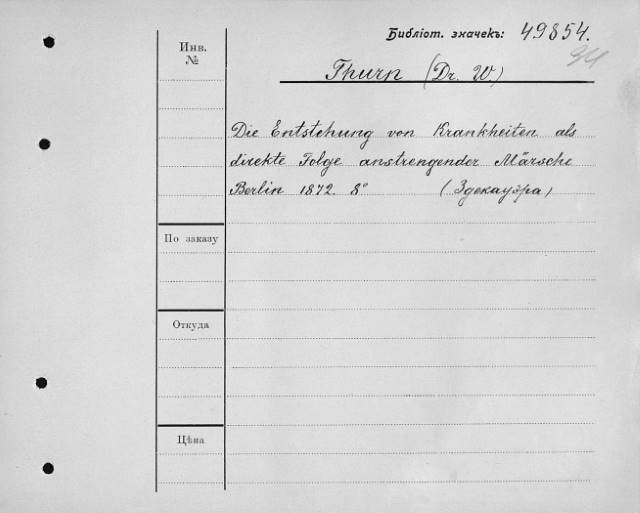 Библіот. значекъ: 49854.
94
Инв.
№
Thurn (Dr. W.)
Die Entstehung von Krankheiten als
direkte Folge anstrengender Märsche
Berlin 1872. 8° (Здекауэра)
По заказу
Откуда
Цѣна